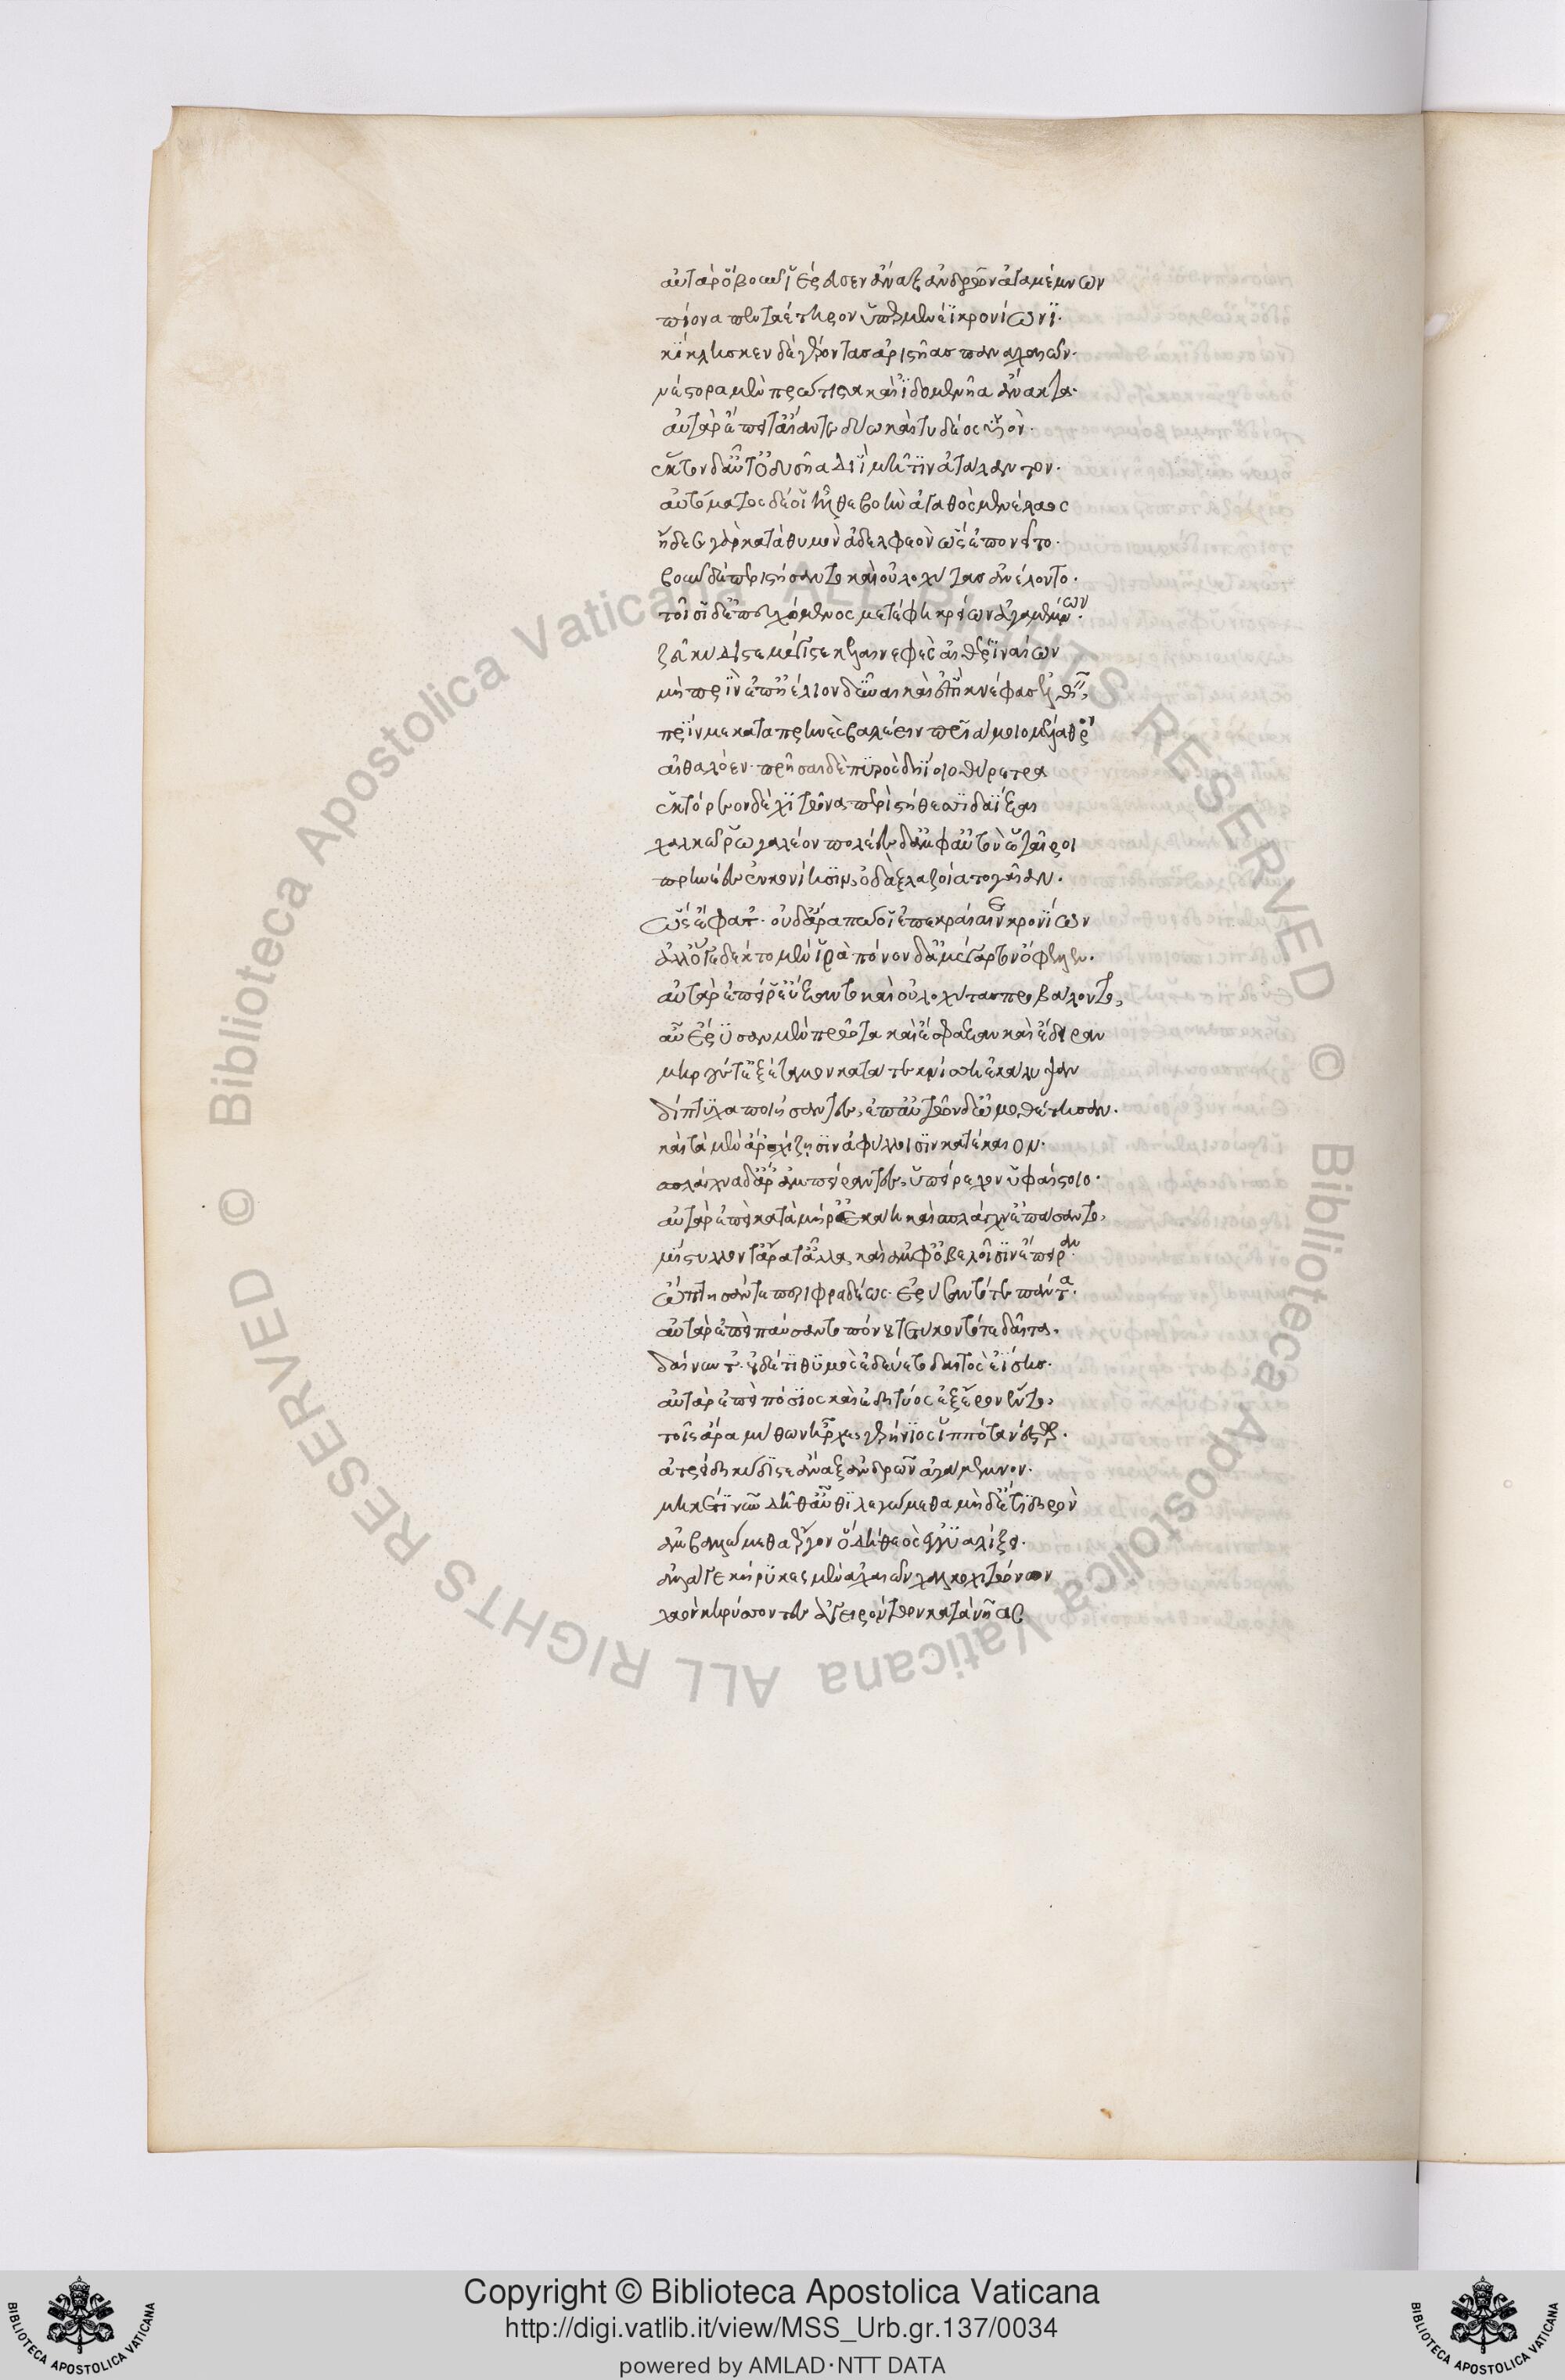 αὐτὰρ ὃ βοῦν ἱέρευσεν ἄναξ ἀνδρῶν ἀγαμέμνων
πίονα πενταέτηρον ὑπερμενέϊ κρονίωνϊ.
κίκλησκεν δὲ γέροντας ἀριστῆας παναχαιῶν.
νέστορα μὲν πρώτιστα καὶ ϊδομενῆα ἄνακτα.
αὐτὰρ ἔπειτ' αἴαντε δύω καὶ τυδέος υἱὸν.
ἕκτον δ' αὖτ' ὀδυσῆα διῒ μῆτιν ἀτάλαντον.
αὐτόματος δέ οἱ ἦλθε βοὴν ἀγαθὸς μενέλαος
ᾔδεε γὰρ κατὰ θυμὸν ἀδελφεὸν ὡς ἐπονεῖτο.
βοῦν δὲ περιστήσαντο καὶ οὐλοχύτας ἀνέλοντο.
τοῖσι δ' ἐπευχόμενος μετέφη κρείων ἀγαμέμνων.
ζεῦ κύδιστε μέγιστε κελαινεφὲς αἰθέρι ναίων
μὴ πρὶν ἐπ' ἠέλιον δῦναι καὶ ἐπὶ κνέφας ἐλθεῖν,
πρίν με κατὰ πρηνὲς βαλέειν πριάμοιο μέλαθρον
αἰθαλόεν. πρῆσαι δὲ πυρὸς δηΐοιο θύρετρα
ἑκτόρεον δὲ χιτῶνα περὶ στήθεσϊ δαΐξαι
χαλκῷ ῥωγαλέον πολέες δ' ἀμφ' αὐτὸν ἑταῖροι
πρηνέες ἐν κονίῃσϊν, ὀδὰξ λαζοίατο γαῖαν.
ὣς ἔφατ'. οὐδ' ἄρα πώ οἱ ἐπεκραίαινε κρονίων
ἀλλ' ὅγε δέκτο μὲν ἱρὰ πόνον δ' ἀμέγαρτον ὄφελλεν.
αὐτὰρ ἐπεί ῥ' εὔξαντο καὶ οὐλοχύτας προβάλοντο,
αὖ ἔρυσαν μὲν πρῶτα καὶ ἔσφαξαν καὶ ἔδειραν
μηρούς τ' ἐξέταμον κατά τε κνίσῃ ἐκάλυψαν
δίπτυχα ποιήσαντες, ἐπ' αὐτῶν δ' ὠμοθέτησαν.
καὶ τὰ μὲν ἂρ σχίζῃσϊν ἀφύλλοισϊν κατέκαιον.
σπλάγχνα δ' ἄρ' ἀμπείραντες, ὑπείρεχον ἡφαίστοιο.
αὐτὰρ ἐπεὶ κατὰ μῆρ' ἐκάη καὶ σπλάγχν' ἐπάσαντο,
μίστυλλόν τ' ἄρα τἄλλα, καὶ ἀμφ' ὀβελοῖσϊν ἔπειραν.
ὤπτησάν τε περιφραδέως. ἐρύσαντό τε πάντα.
αὐτὰρ ἐπεὶ παύσαντο πόνου τετύκοντό τε δαῖτα.
δαίνυντ'. οὐδέ τι θυμὸς ἐδεύετο δαιτὸς ἐΐσης.
αὐτὰρ ἐπεὶ πόσϊος καὶ ἐδητύος ἐξ ἔρον ἕντο,
τοῖς ἄρα μύθων ἦρχε, γερήνϊος ἱππότα νέστωρ.
ἀτρείδη κύδιστε ἄναξ ἀνδρῶν ἀγάμεμνον.
μηκέτι νῦν δήθ' αὖθϊ λεγώμεθα μὴ δ' ἔτϊ δηρὸν
ἀμβαλλώμεθα ἔργον ὃ δὴ θεὸς ἐγγυαλίξει.
ἀλλάγε κήρυκες μὲν ἀχαιῶν χαλκοχιτώνων
λαὸν κηρύσσοντες ἀγειρόντων κατὰ νῆας
Copyright © Biblioteca Apostolica Vaticana
http://digi.vatlib.it/view/MSS_Urb.gr.137/0034
powered by AMLAD·NTT DATA